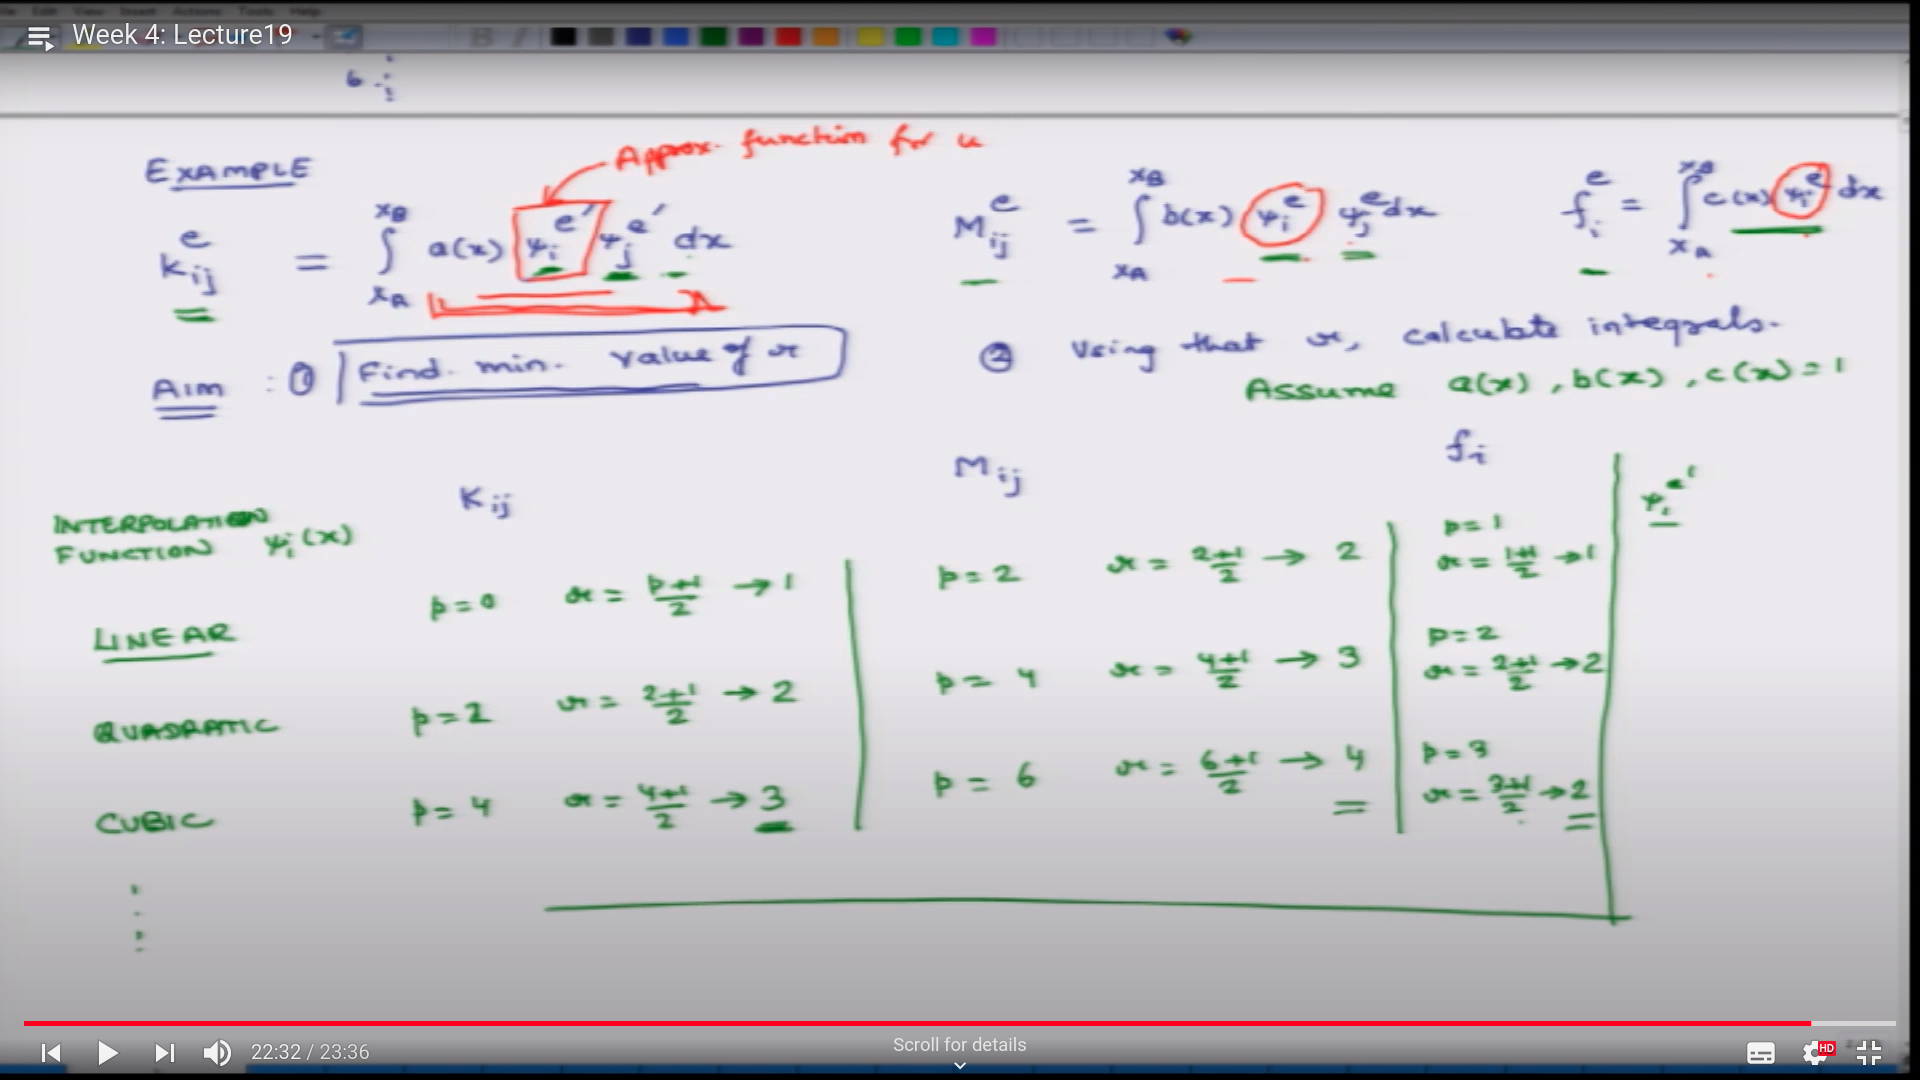 File Edit View Insert Actions Tools Help
Week 4: Lecture19
EXAMPLE
Approx. function for u
K_ij^e = ∫_{x_A}^{x_B} a(x) ψ_i^e′ ψ_j^e′ dx
M_ij^e = ∫_{x_A}^{x_B} b(x) ψ_i^e ψ_j^e dx
f_i^e = ∫_{x_A}^{x_B} c(x) ψ_i^e dx
Aim : ① Find min. value of r
② Using that r, calculate integrals.
Assume a(x), b(x), c(x) = 1
INTERPOLATION
FUNCTION ψ_i(x)
K_ij
M_ij
f_i
ψ_i^e′
LINEAR
p=0 r = (p+1)/2 → 1
p=2 r = (2+1)/2 → 2
p=1
r = (1+1)/2 → 1
QUADRATIC
p=2 r = (2+1)/2 → 2
p= 4 r = (4+1)/2 → 3
p=2
r = (2+1)/2 → 2
CUBIC
p= 4 r = (4+1)/2 → 3
p = 6 r = (6+1)/2 → 4
p=3
r = (3+1)/2 → 2
22:32 / 23:36
Scroll for details
HD